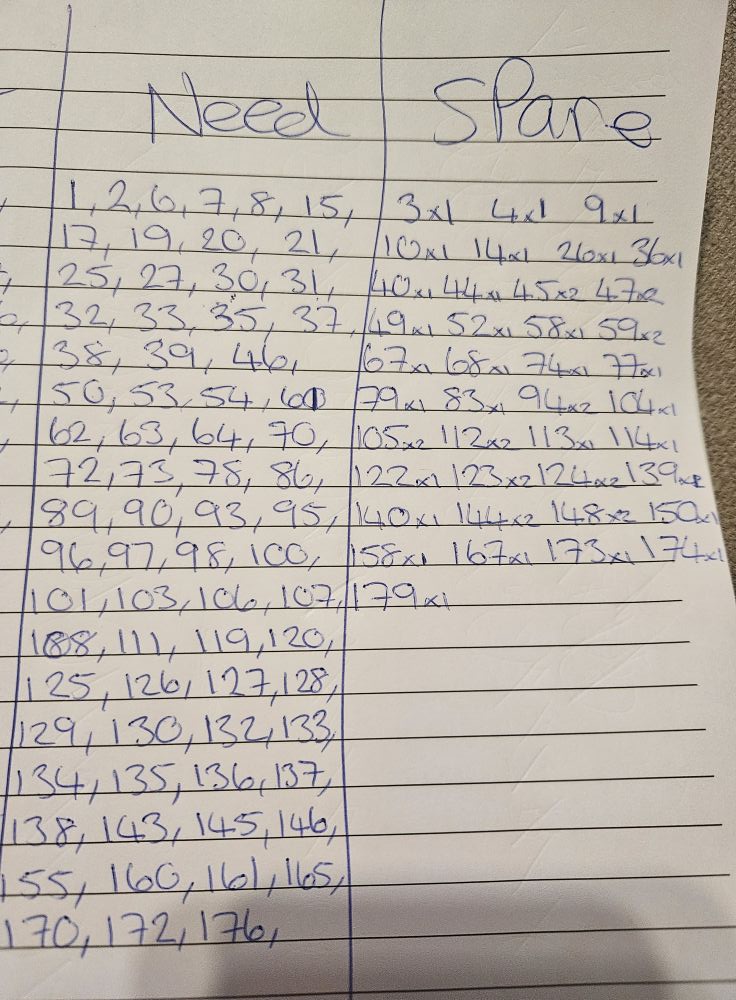 Need SPare
1, 2, 6, 7, 8, 15, 3x1 4x1 9x1
17, 19, 20, 21, 10x1 14x1 26x1 36x1
25, 27, 30, 31, 40x1 44x1 45x2 47x2
32, 33, 35, 37, 49x1 52x1 58x1 59x2
38, 39, 46, 67x1 68x1 74x1 77x1
50, 53, 54, 79x1 83x1 94x2 104x1
62, 63, 64, 70, 105x2 112x2 113x1 114x1
72, 73, 78, 86, 122x1 123x2 124x2 139x2
89, 90, 93, 95, 140x1 144x2 148x2 150x1
96, 97, 98, 100, 158x1 167x1 173x1 174x1
101, 103, 106, 107, 179x1
108, 111, 119, 120,
125, 126, 127, 128,
129, 130, 132, 133,
134, 135, 136, 137,
138, 143, 145, 146,
155, 160, 161, 165,
170, 172, 176,